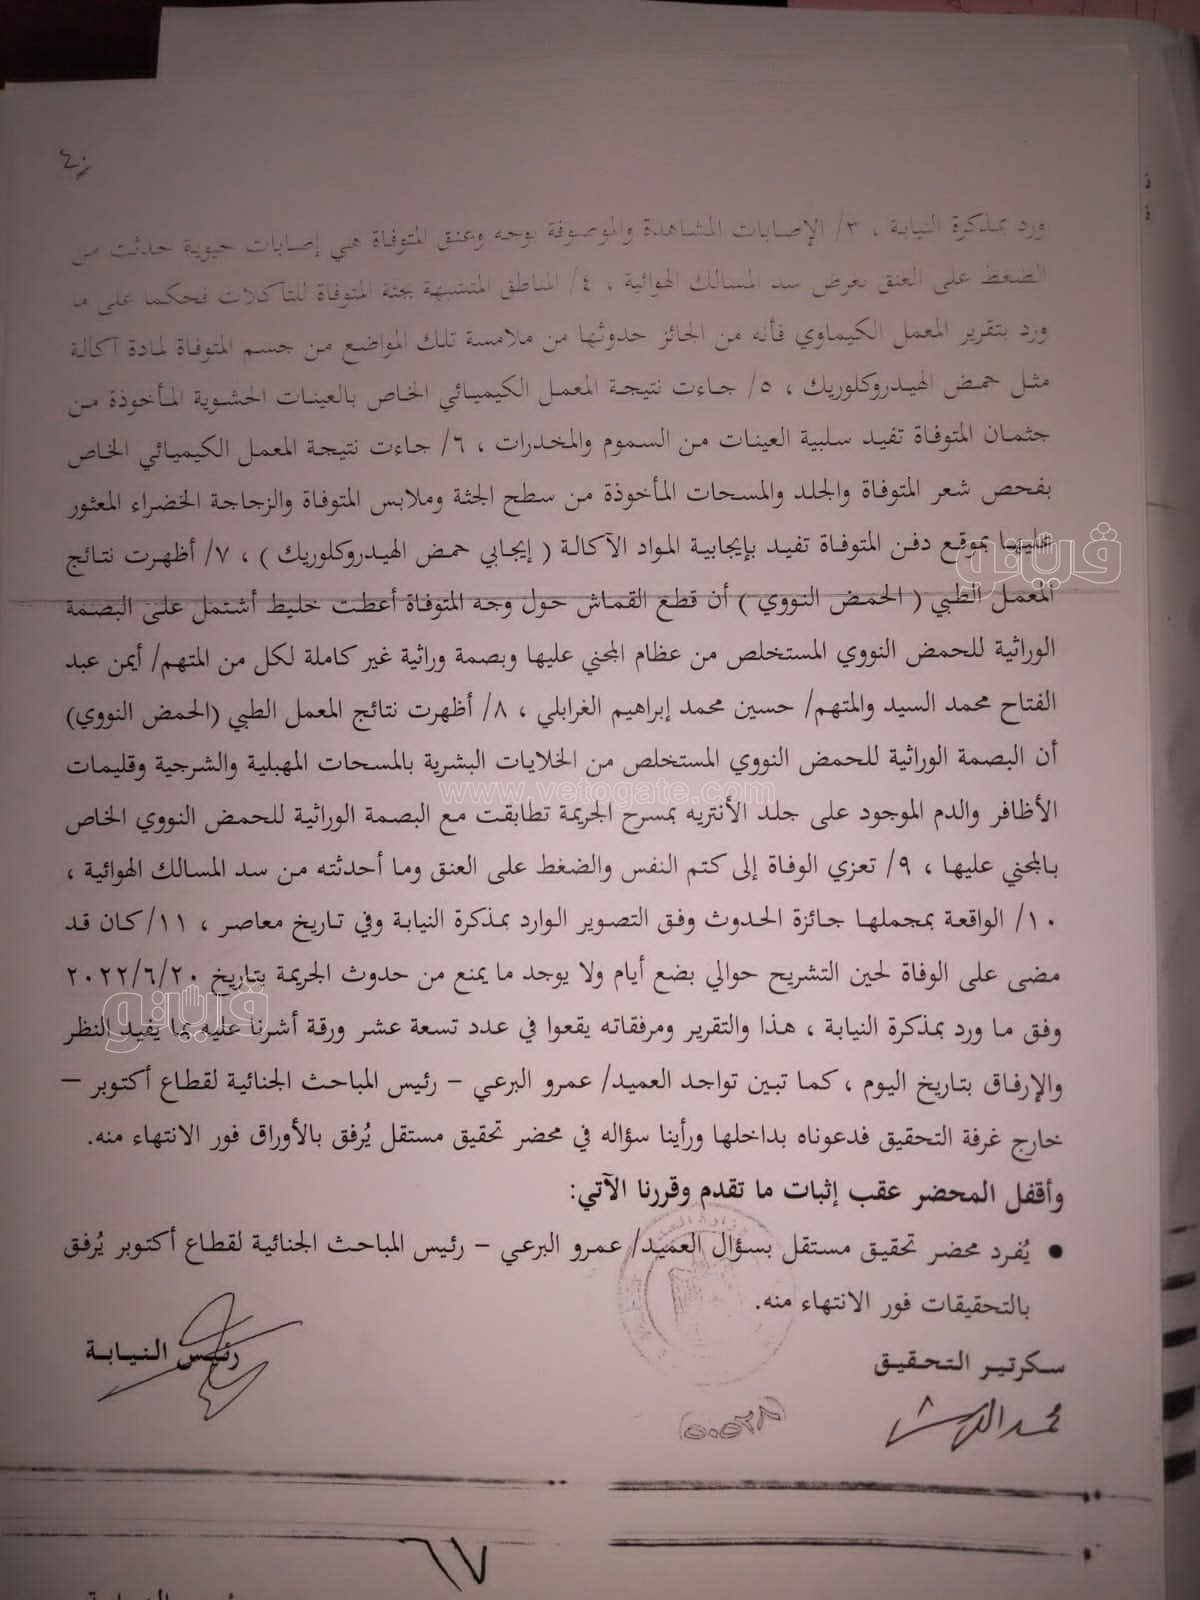 ٤٠
ورد بمذكرة النيابة ، ٣/ الإصابات المشاهدة والموصوفة بوجه وعنق المتوفاة هي إصابات حيوية حدثت من
الضغط على العنق بغرض سد المسالك الهوائية ، ٤/ المناطق المتشبهة بجثة المتوفاة للتآكلات فحكما على ما
ورد بتقرير المعمل الكيماوي فأنه من الجائز حدوثها من ملامسة تلك المواضع من جسم المتوفاة لمادة آكالة
مثل حمض الهيدروكلوريك ، ٥/ جاءت نتيجة المعمل الكيميائي الخاص بالعينات الحشوية المأخوذة من
جثمان المتوفاة تفيد سلبية العينات من السموم والمخدرات ، ٦/ جاءت نتيجة المعمل الكيميائي الخاص
بفحص شعر المتوفاة والجلد والمسحات المأخوذة من سطح الجثة وملابس المتوفاة والزجاجة الخضراء المعثور
عليها بموقع دفن المتوفاة تفيد بإيجابية المواد الآكالة ( إيجابي حمض الهيدروكلوريك ) ، ٧/ أظهرت نتائج
فيتو
المعمل الطبي ( الحمض النووي ) أن قطع القماش حول وجه المتوفاة أعطت خليط أشتمل على البصمة
الوراثية للحمض النووي المستخلص من عظام المجني عليها وبصمة وراثية غير كاملة لكل من المتهم/ أيمن عبد
الفتاح محمد السيد والمتهم/ حسين محمد إبراهيم الغرابلي ، ٨/ أظهرت نتائج المعمل الطبي (الحمض النووي)
أن البصمة الوراثية للحمض النووي المستخلص من الخلايات البشرية بالمسحات المهبلية والشرجية وقليمات
www.vetogate.com
الأظافر والدم الموجود على جلد الأنتريه بمسرح الجريمة تطابقت مع البصمة الوراثية للحمض النووي الخاص
بالمجني عليها ، ٩/ تعزي الوفاة إلى كتم النفس والضغط على العنق وما أحدثته من سد المسالك الهوائية ،
١٠/ الواقعة بمجملها جائزة الحدوث وفق التصوير الوارد بمذكرة النيابة وفي تاريخ معاصر ، ١١/ كان قد
مضى على الوفاة لحين التشريح حوالي بضع أيام ولا يوجد ما يمنع من حدوث الجريمة بتاريخ ٢٠٢٢/٦/٢٠
فيتو
وفق ما ورد بمذكرة النيابة ، هذا والتقرير ومرفقاته يقعوا في عدد تسعة عشر ورقة أشرنا عليه بما يفيد النظر
والإرفاق بتاريخ اليوم ، كما تبين تواجد العميد/ عمرو البرعي – رئيس المباحث الجنائية لقطاع أكتوبر –
خارج غرفة التحقيق فدعوناه بداخلها ورأينا سؤاله في محضر تحقيق مستقل يُرفق بالأوراق فور الانتهاء منه.
وأقفل المحضر عقب إثبات ما تقدم وقررنا الآتي:
• يُفرد محضر تحقيق مستقل بسؤال العميد/ عمرو البرعي – رئيس المباحث الجنائية لقطاع أكتوبر يُرفق
بالتحقيقات فور الانتهاء منه.
سكرتير التحقيق
رئيس النيابة
(٥٠٥٢٨)
٦٧